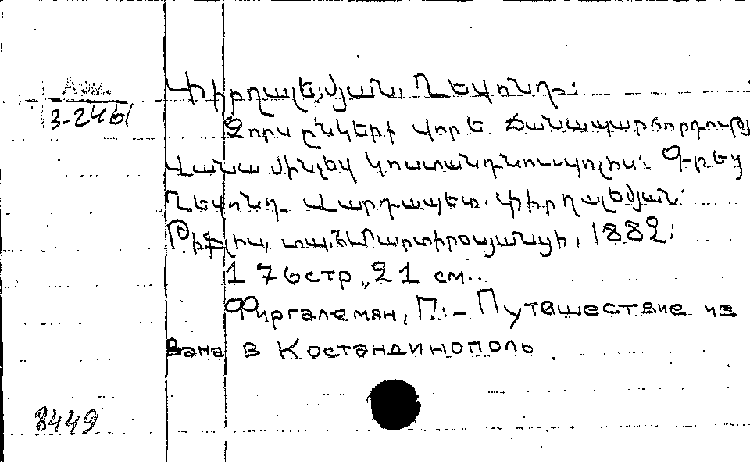 Арм.
3-2461
Փիրղալեմյան, Ղեվոնդ:
Չորս ընկերի կորե. Ճանապարհորդությ
Վանա մինչեվ Կոստանդնուպոլիս: Գրեց
Ղեվոնդ Վարդապետ Փիրղալեմյան:
Թիֆլիս, տպ. Մարտիրոսյանցի, 1882,
176 стр., 21 см..
Фиргалемян, П.- Путешествие из
Вана в Костандинополь
8449